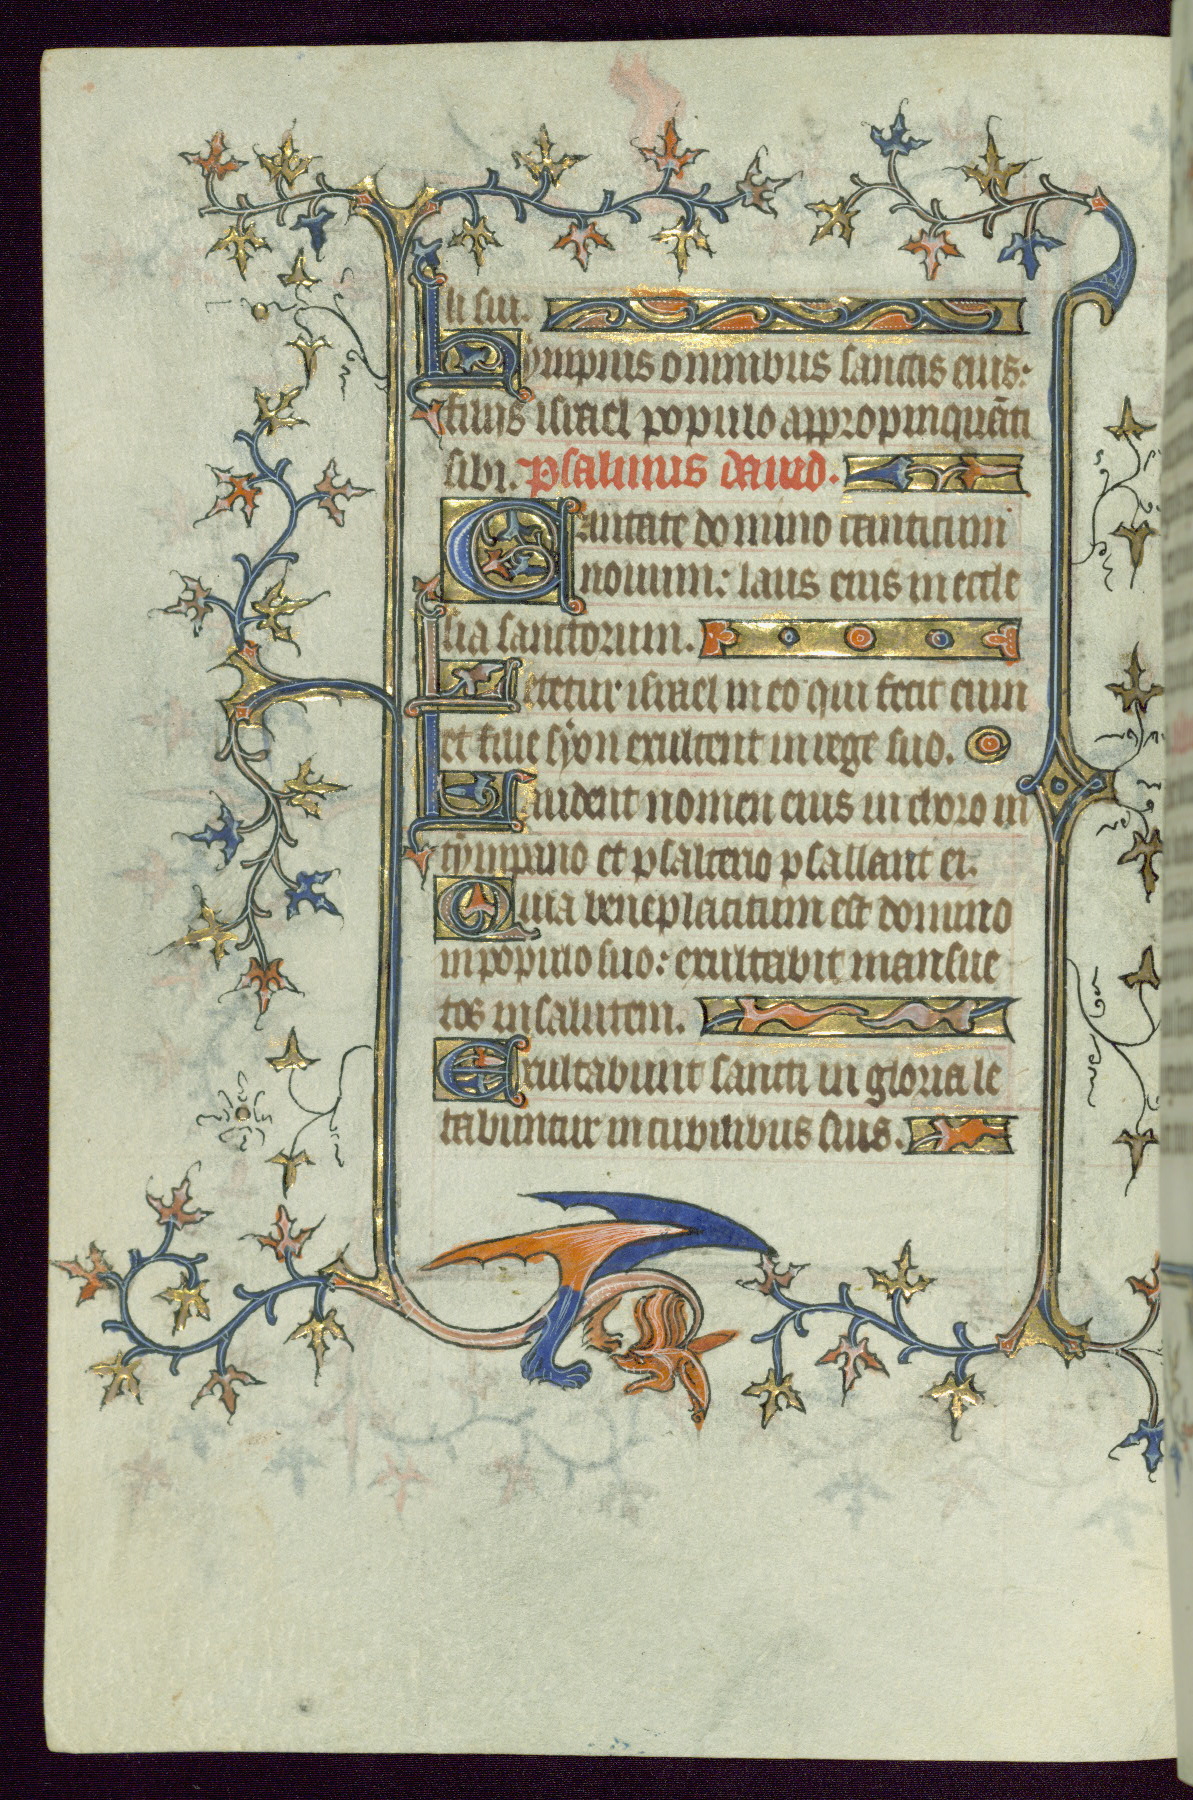 li sui.
Hympnus omnibus sanctis eius:
filiis israel populo appropinquãti
sibi. Psalmus dauid.
Cantate domino canticum
nouum: laus eius in eccle
sia sanctorum.
Letetur israel in eo qui fecit eum
et filie syon exultent in rege suo.
Laudent nomen eius in choro in
tympano et psalterio psallant ei.
Quia beneplacitum est domino
in populo suo: exultabit mansue
tos in salutem.
Exultabunt sancti in gloria le
tabuntur in cubilibus suis.